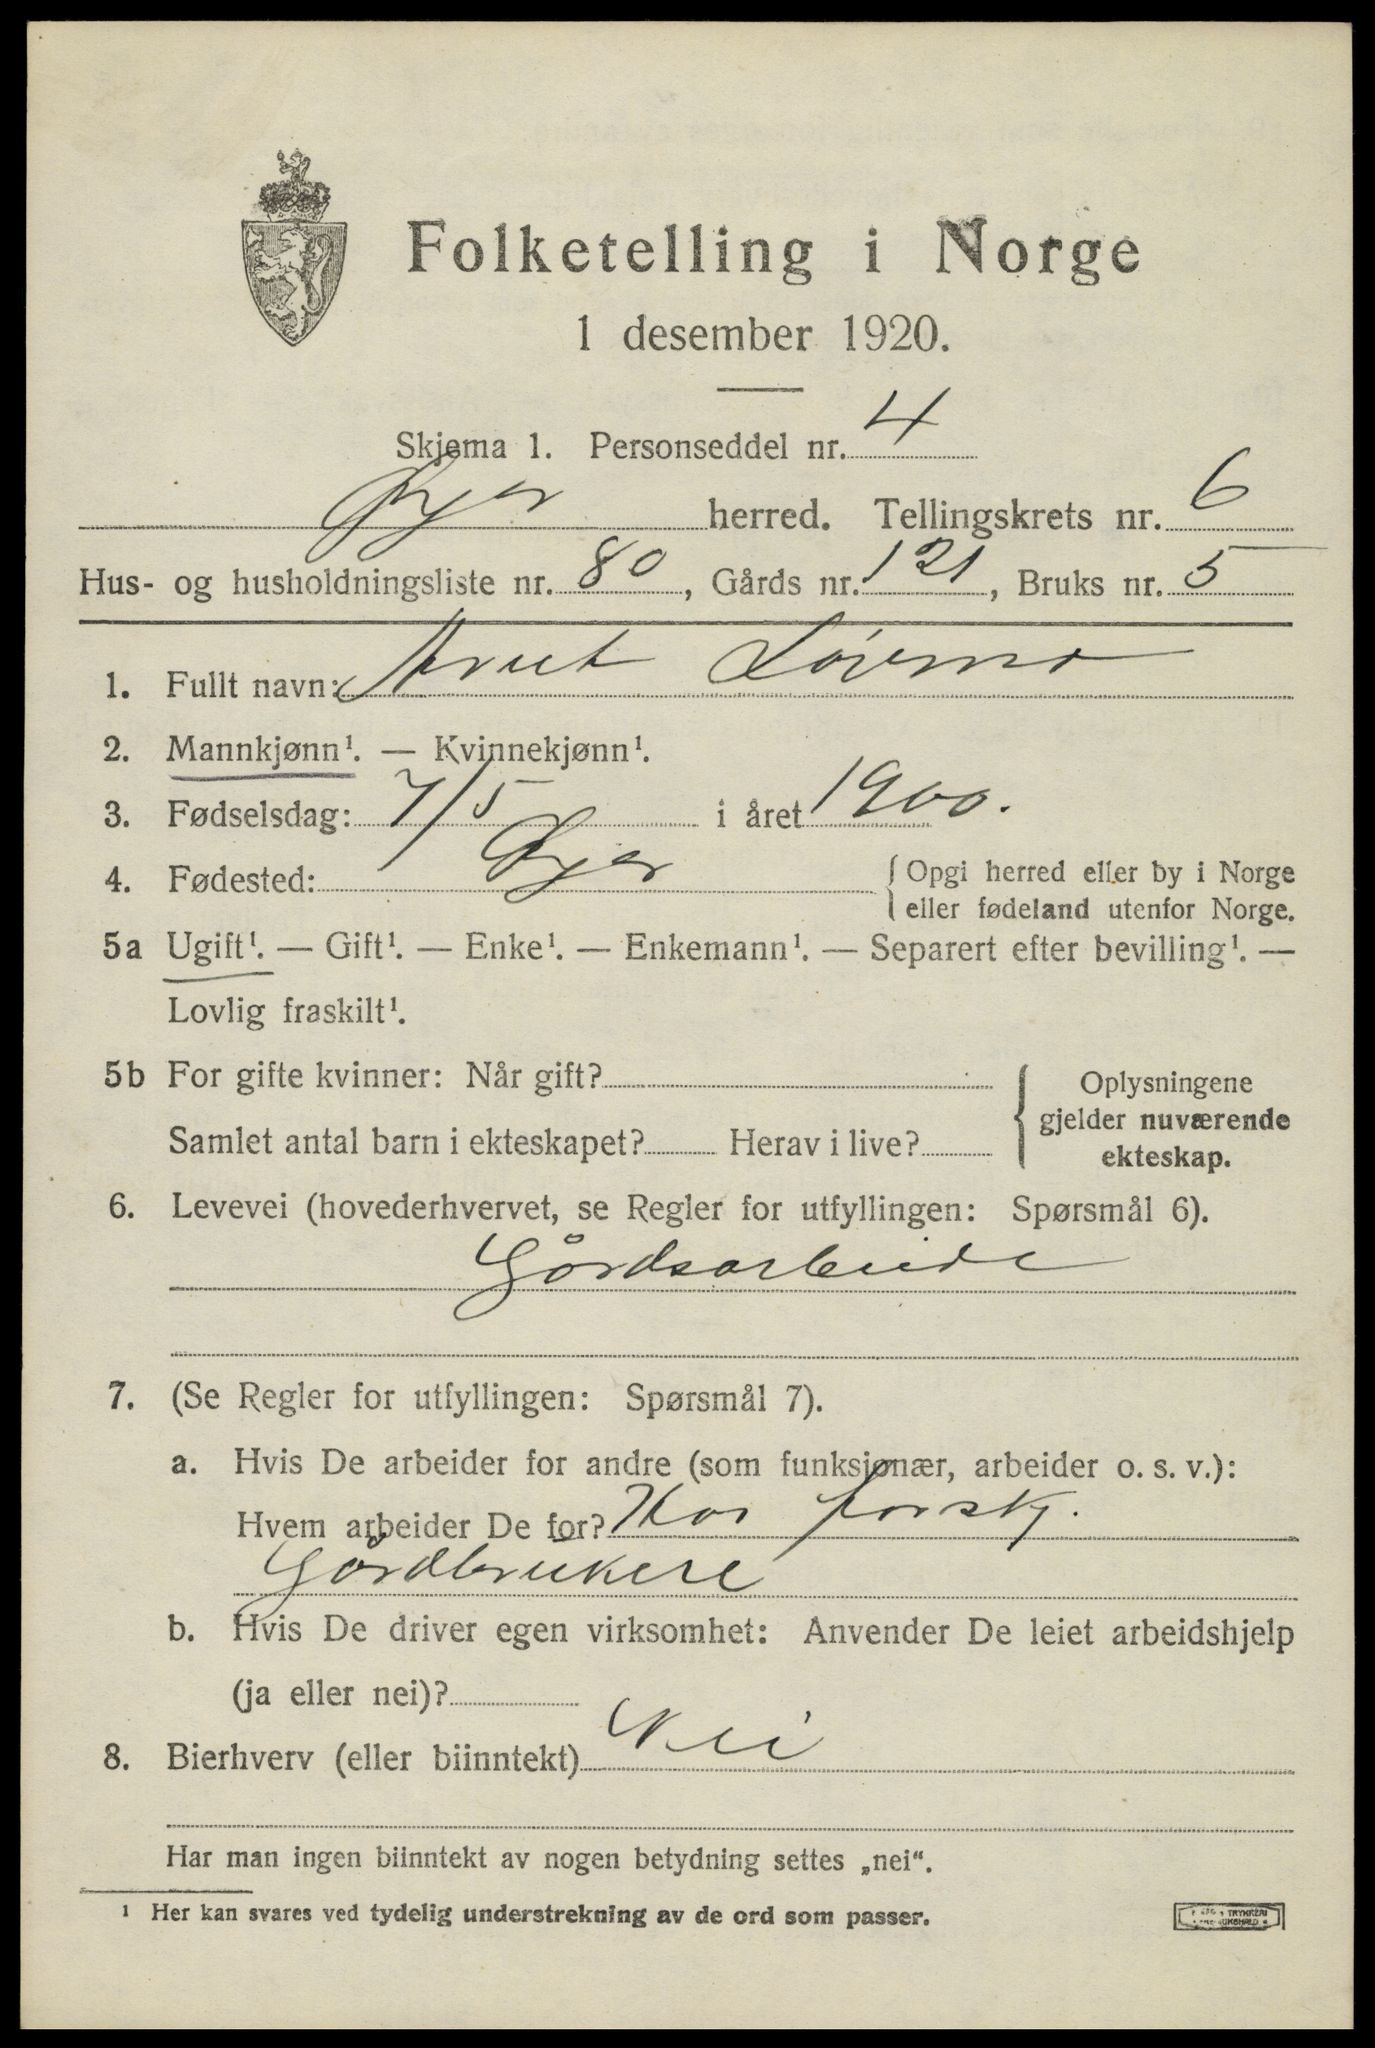 Folketelling i Norge
1 desember 1920.
Skjema 1. Personseddel nr. 4
Øyer herred. Tellingskrets nr. 6
Hus- og husholdningsliste nr. 80, Gårds nr. 121, Bruks nr. 5
1. Fullt navn: Arnt
2. Mannkjønn¹. — Kvinnekjønn¹.
3. Fødselsdag: 7/5 i året 1900.
4. Fødested: Øyer {Opgi herred eller by i Norge
eller fødeland utenfor Norge.
5a Ugift¹. — Gift¹. — Enke¹. — Enkemann¹. — Separert efter bevilling¹. —
Lovlig fraskilt¹.
5b For gifte kvinner: Når gift?
Samlet antal barn i ekteskapet? Herav i live?
Oplysningene
gjelder nuværende
ekteskap.
6. Levevei (hovederhvervet, se Regler for utfyllingen: Spørsmål 6).
Gårdsarbeide
7. (Se Regler for utfyllingen: Spørsmål 7).
a. Hvis De arbeider for andre (som funksjonær, arbeider o. s. v.):
Hvem arbeider De for? Hos forskj.
Gårdbrukere
b. Hvis De driver egen virksomhet: Anvender De leiet arbeidshjelp
(ja eller nei)?
8. Bierhverv (eller biinntekt) Nei
Har man ingen biinntekt av nogen betydning settes „nei“.
¹ Her kan svares ved tydelig understrekning av de ord som passer.